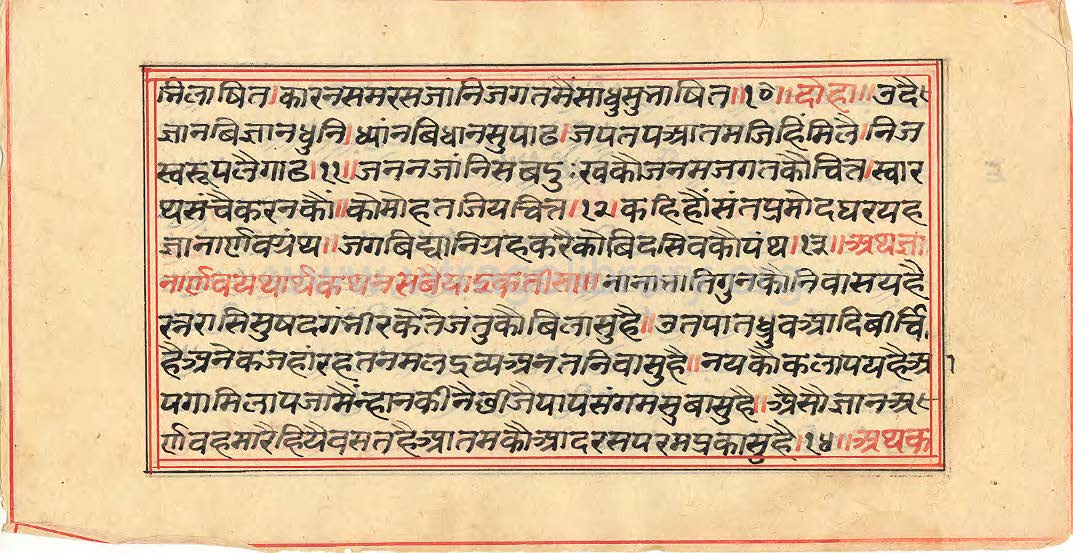 भिलाषित।कारनसमरसजांनिजगतमैंसाधुसुभाषित॥१०॥दोहा॥उदै
ज्ञानबिज्ञानधुनि।ध्यांनबिधानसुपाठ।जपतपआतमजिहिंमिलै।निज
स्वरूपलैगाढ।११॥जननजांनिसबदुःखकौजनमजगतकौचित्त।स्वार
थसचैकरनकौं॥कोमोहतजियचित्त।१२।कहिहौंसंतप्रमोदघरयह
ज्ञानार्णवग्रंथ॥जगबिद्यानिग्रहकरैकौबिदसिवकौपंथ।१३॥अथज्ञा
नार्णवयथार्थकथनसबैयाइकतीसा॥नानाभातिगुनकौनिवासयहै
रत्नरासिसुषदगभीरकैतेजंतुकौबिलासुहै॥उतपातध्रुवआदिबीचि
हैअनेकजहांरहतनमलद्रव्यअनतनिवासुहै॥नयकौकलापयहैआ
पगामिलापजामैंन्हानकीनैछीजैपापसंगमसुबासुहै॥अैसौज्ञानअ
र्णवहमारैहियैवसतहैआतमकौआदरसपरमप्रकासुहै।१४॥अथक